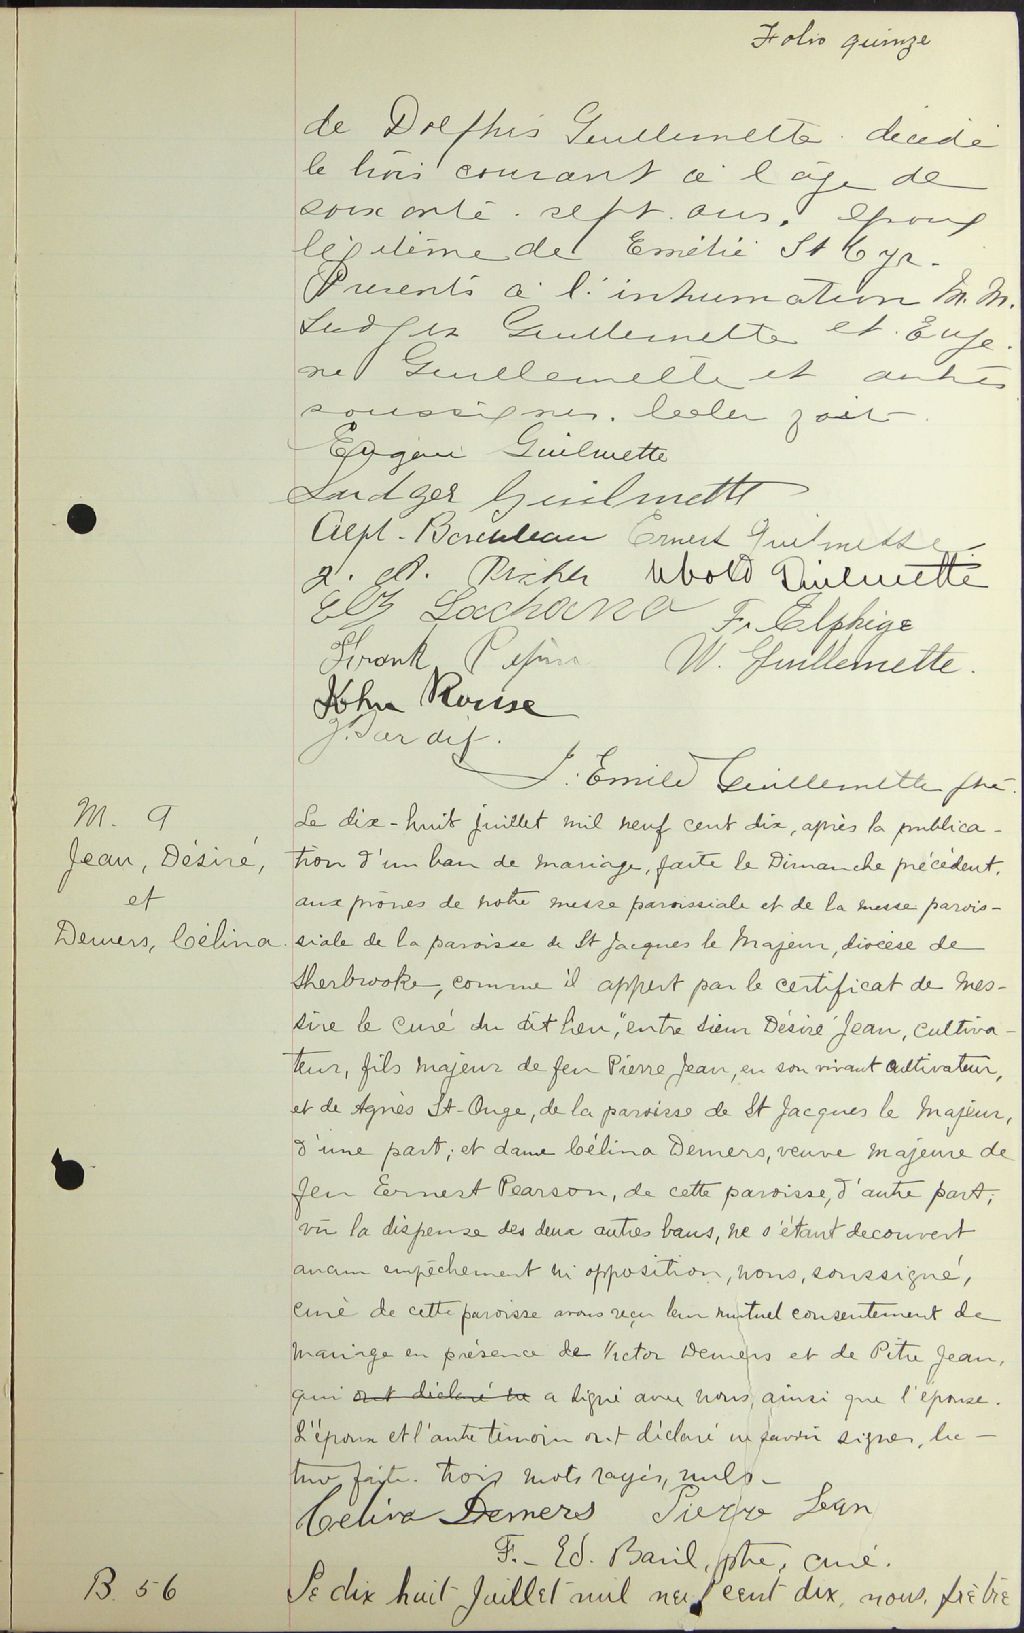 Folio quinze
de Dolphis Guillemette décédé
le trois courant à l'âge de
soixante sept ans, époux
légitime de Emélie St Cyr.
Présents à l'inhumation M. M.
Ludger Guillemette et Euge-
ne Guillemette et autres
soussignés. Lecture fait
Eugène Guilmette
Ludger Guilmette
Alph. Ernest Guilmette
Ubold Guilmette
F. Elphige
Frank Pepin W. Guillemette.
John Rouse
J. Tardif.
J. Emile Guillemette ptre.
M. 9
Jean, Désiré,
et
Demers, Célina.
Le dix-huit juillet mil neuf cent dix, après la publica-
tion d'un ban de mariage, faite le Dimanche précédent,
aux prônes de notre messe paroissiale et de la messe parois-
siale de la paroisse de St Jacques le Majeur, diocèse de
Sherbrooke, comme il appert par le certificat de Mes-
sire le curé du dit lieu, entre sieur Désiré Jean, cultiva-
teur, fils majeur de feu Pierre Jean, en son vivant cultivateur,
et de Agnès St-Onge, de la paroisse de St Jacques le Majeur,
d'une part; et dame Célina Demers, veuve majeure de
feu Eernest Pearson, de cette paroisse, d'autre part;
vû la dispense des deux autres bans, ne s'étant decouvert
aucun empêchement ni opposition, nous, soussigné,
curé de cette paroisse avons reçu leur mutuel consentement de
mariage en présence de Victor Demers et de Pitre Jean,
qui ont déclaré ne a signé avec nous, ainsi que l'épouse.
L'époux et l'autre témoin ont déclaré ne savoir signer, lec-
ture faite. trois mots rayés, nuls.
Celina Demers Pierre Jean
F.- Ed. Baril, ptre, curé.
B. 56
Le dix huit Juillet mil neuf cent dix, nous, prêtre